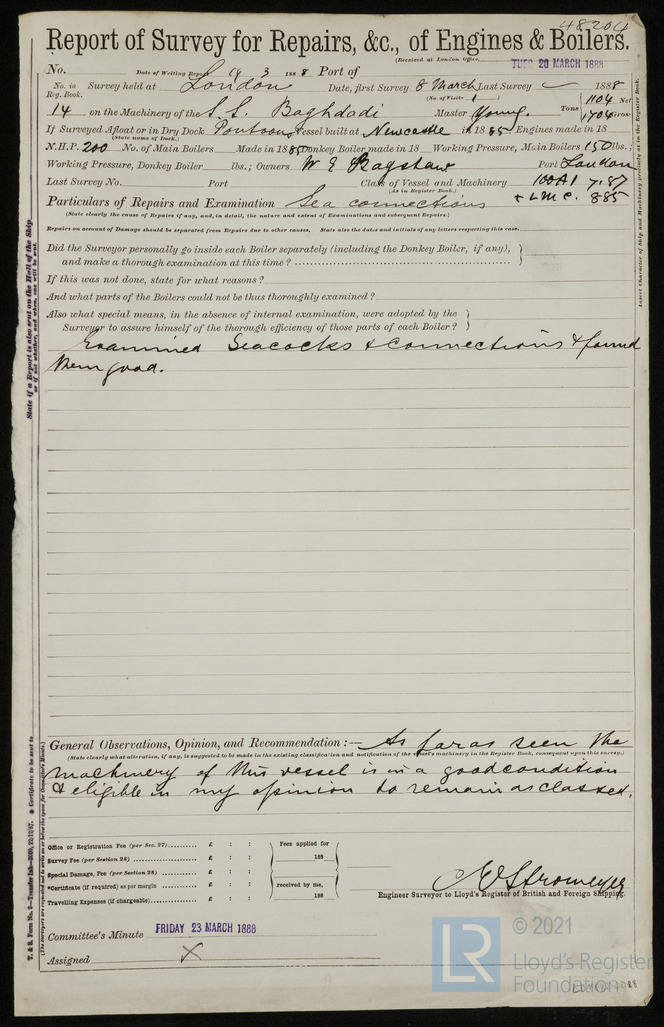 48206
Report of Survey for Repairs, &c., of Engines & Boilers.
(Received at London Office, TUES 20 MARCH 1888
No. Date of Writing Report 19 3 1888 Port of
No. in Reg. Book. Survey held at London Date, first Survey 8 March Last Survey 1888
(No. of Visits 1)
14 on the Machinery of the S. S. Baghdadi Master Young. Tons 1104 Net 1706 Gross
If Surveyed Afloat or in Dry Dock Pontoons Vessel built at Newcastle in 1885 Engines made in 18
(State name of Dock.)
N.H.P. 200 No. of Main Boilers Made in 1885 Donkey Boiler made in 18 Working Pressure, Main Boilers 150 lbs.;
Working Pressure, Donkey Boiler lbs.; Owners W E Bagshaw Port London
Last Survey No. Port Class of Vessel and Machinery 100A1 7.87
(As in Register Book.)
Particulars of Repairs and Examination Sea connections + LMC. 8.85
(State clearly the cause of Repairs if any, and, in detail, the nature and extent of Examinations and subsequent Repairs.)
Repairs on account of Damage should be separated from Repairs due to other causes. State also the dates and initials of any letters respecting this case.
Did the Surveyor personally go inside each Boiler separately (including the Donkey Boiler, if any),
and make a thorough examination at this time?
If this was not done, state for what reasons?
And what parts of the Boilers could not be thus thoroughly examined?
Also what special means, in the absence of internal examination, were adopted by the
Surveyor to assure himself of the thorough efficiency of those parts of each Boiler?
Examined Seacocks & connections & found
them good.
State if a Report is also sent on the Hull of the Ship
or if not whether, and when, one will be sent.
Insert Character of Ship and Machinery precisely as in the Register Book.
General Observations, Opinion, and Recommendation :— As far as seen the
(State clearly what alteration, if any, is suggested to be made in the existing classification and notification of the vessel's machinery in the Register Book, consequent upon this survey.)
machinery of this vessel is in a good condition
& eligible in my opinion to remain as classed.
Office or Registration Fee (per Sec. 27) £ : : Fees applied for
Survey Fee (per Section 28) £ : : 188
Special Damage, Fee (per Section 28) £ : :
*Certificate (if required) as per margin £ : : received by me,
Travelling Expenses (if chargeable) £ : : 188
Stromeyer
Engineer Surveyor to Lloyd's Register of British and Foreign Shipping.
Committee's Minute FRIDAY 23 MARCH 1888
Assigned X
* Certificate to be sent to
LR
© 2021
Lloyd's Register
Foundation